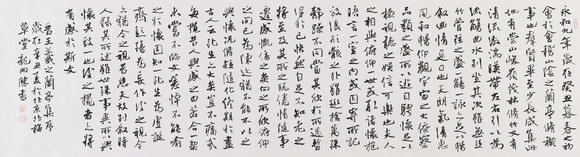 永和九年歲在癸丑暮春之初
會於會稽山陰之蘭亭脩禊
事也群賢畢至少長咸集此
地有崇山峻嶺茂林脩竹又有
清流激湍映帶左右引以為
流觴曲水列坐其次雖無絲
竹管弦之盛一觴一詠亦足以暢
敘幽情是日也天朗氣清惠
風和暢仰觀宇宙之大俯察
品類之盛所以遊目騁懷足以
極視聽之娛信可樂也夫人
之相與俯仰一世或取諸懷抱
語言一室之內或因寄所託
放浪形骸之外雖趣舍萬殊
靜躁不同當其欣於所遇暫得
於己快然自足不知老之
將至及其所之既倦情隨事
遷感慨係之矣向之所欣俯仰
之間已為陳迹猶不能不以之
興懷況脩短隨化終期於盡
古人云死生亦大矣豈不痛哉
每攬昔人興感之由若合一契
未嘗不臨文嗟悼不能喻
之於懷固知死生為虛誕
齊彭殤為妄作後之視今亦
由今之視昔悲夫故列敘時
人錄其所述雖世殊事異所以興
懷其致一也後之攬者亦將
有感於斯文
書王羲之蘭亭集序
歲在辛丑夏於北京北海
草堂